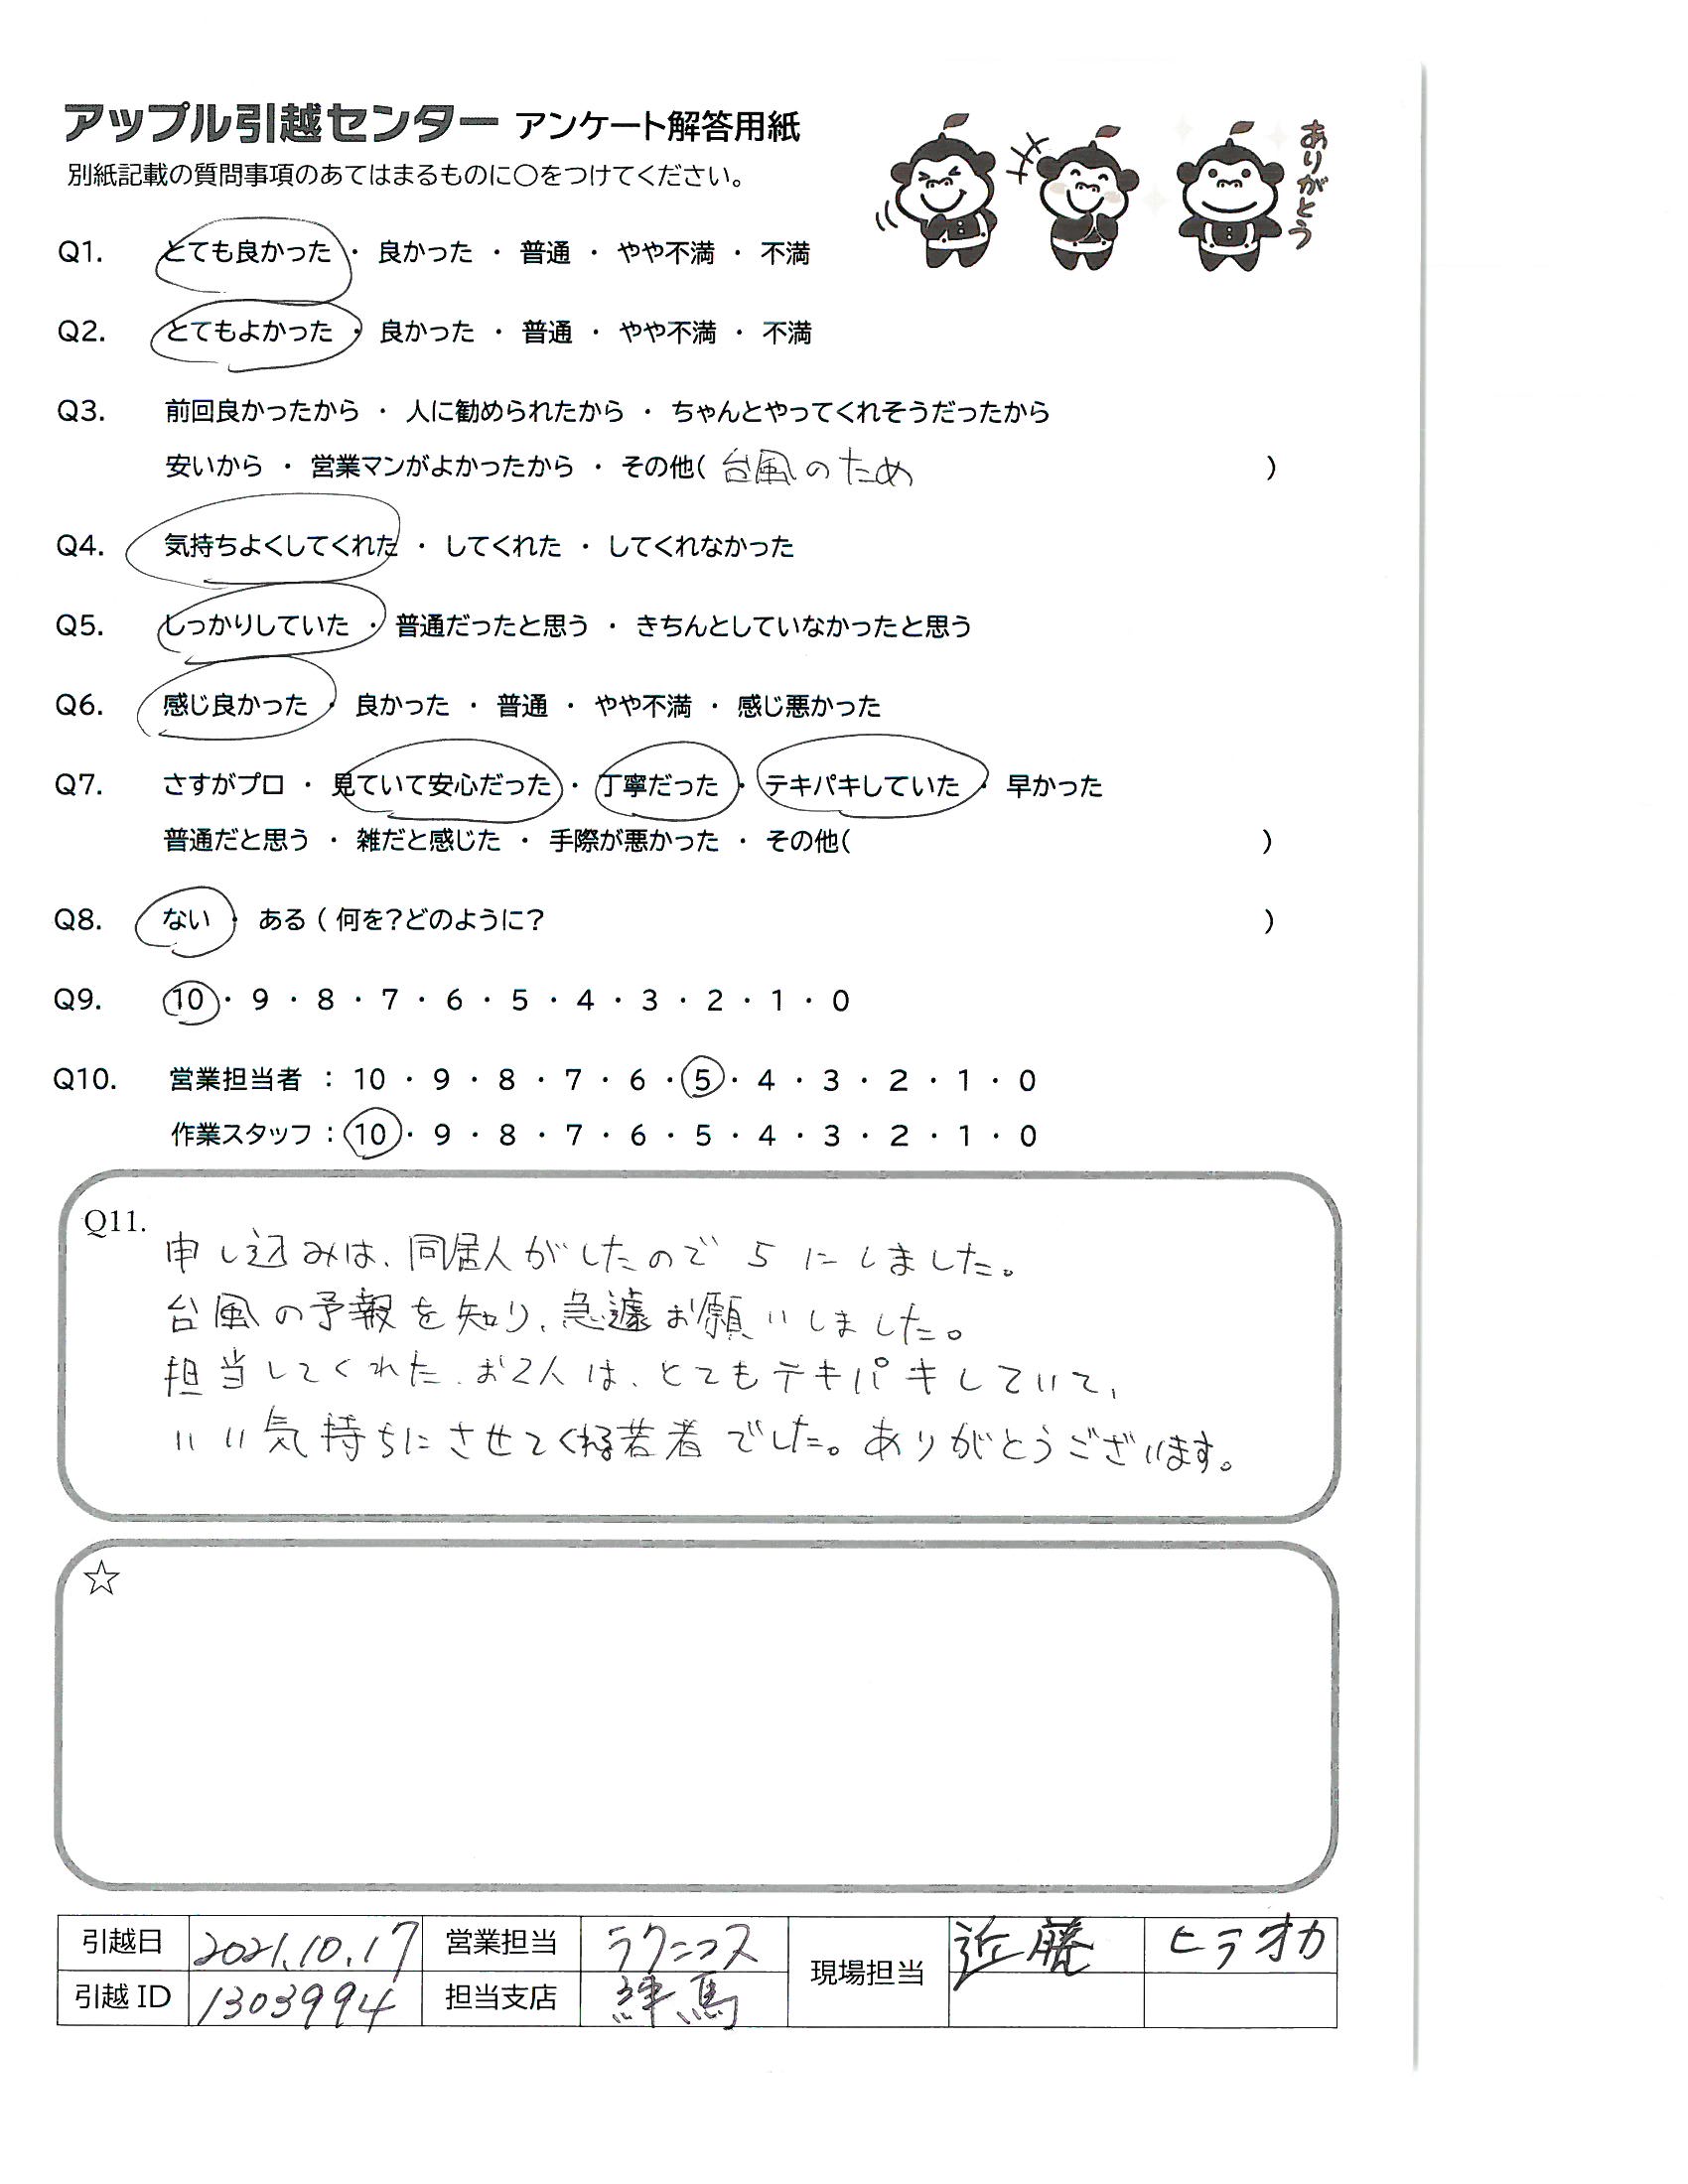 アップル引越センター アンケート解答用紙
ありがとう
別紙記載の質問事項のあてはまるものに○をつけてください。
Q1. とても良かった ・ 良かった ・ 普通 ・ やや不満 ・ 不満
Q2. とてもよかった ・ 良かった ・ 普通 ・ やや不満 ・ 不満
Q3. 前回良かったから ・ 人に勧められたから ・ ちゃんとやってくれそうだったから
安いから ・ 営業マンがよかったから ・ その他( 台風のため )
Q4. 気持ちよくしてくれた ・ してくれた ・ してくれなかった
Q5. しっかりしていた ・ 普通だったと思う ・ きちんとしていなかったと思う
Q6. 感じ良かった ・ 良かった ・ 普通 ・ やや不満 ・ 感じ悪かった
Q7. さすがプロ ・ 見ていて安心だった ・ 丁寧だった ・ テキパキしていた ・ 早かった
普通だと思う ・ 雑だと感じた ・ 手際が悪かった ・ その他( )
Q8. ない ・ ある ( 何を?どのように? )
Q9. 10 ・ 9 ・ 8 ・ 7 ・ 6 ・ 5 ・ 4 ・ 3 ・ 2 ・ 1 ・ 0
Q10. 営業担当者 : 10 ・ 9 ・ 8 ・ 7 ・ 6 ・ 5 ・ 4 ・ 3 ・ 2 ・ 1 ・ 0
作業スタッフ : 10 ・ 9 ・ 8 ・ 7 ・ 6 ・ 5 ・ 4 ・ 3 ・ 2 ・ 1 ・ 0
Q11.
申し込みは、同居人がしたので 5 にしました。
台風の予報を知り、急遽お願いしました。
担当してくれた、お2人は、とてもテキパキしていて、
いい気持ちにさせてくれる若者でした。ありがとうございます。
☆
引越日 2021.10.17 営業担当 ラクニコス 現場担当 近藤 ヒラオカ
引越 ID 1303994 担当支店 練馬